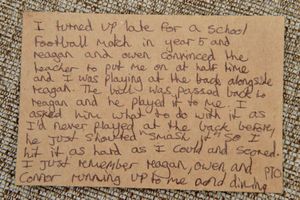 I turned up late for a school
football match in year 5 and
reagan and owen convinced the
teacher to put me on at half time
and I was playing at the back alongside
reagan. The ball was passed back to
reagan and he played it to me. I
asked him what to do with it as
I'd never played at the back before,
he just shouted "smash it" so I
hit it as hard as I could and scored.
I just remember reagan, owen, and PTO
Connor running up to me and diving